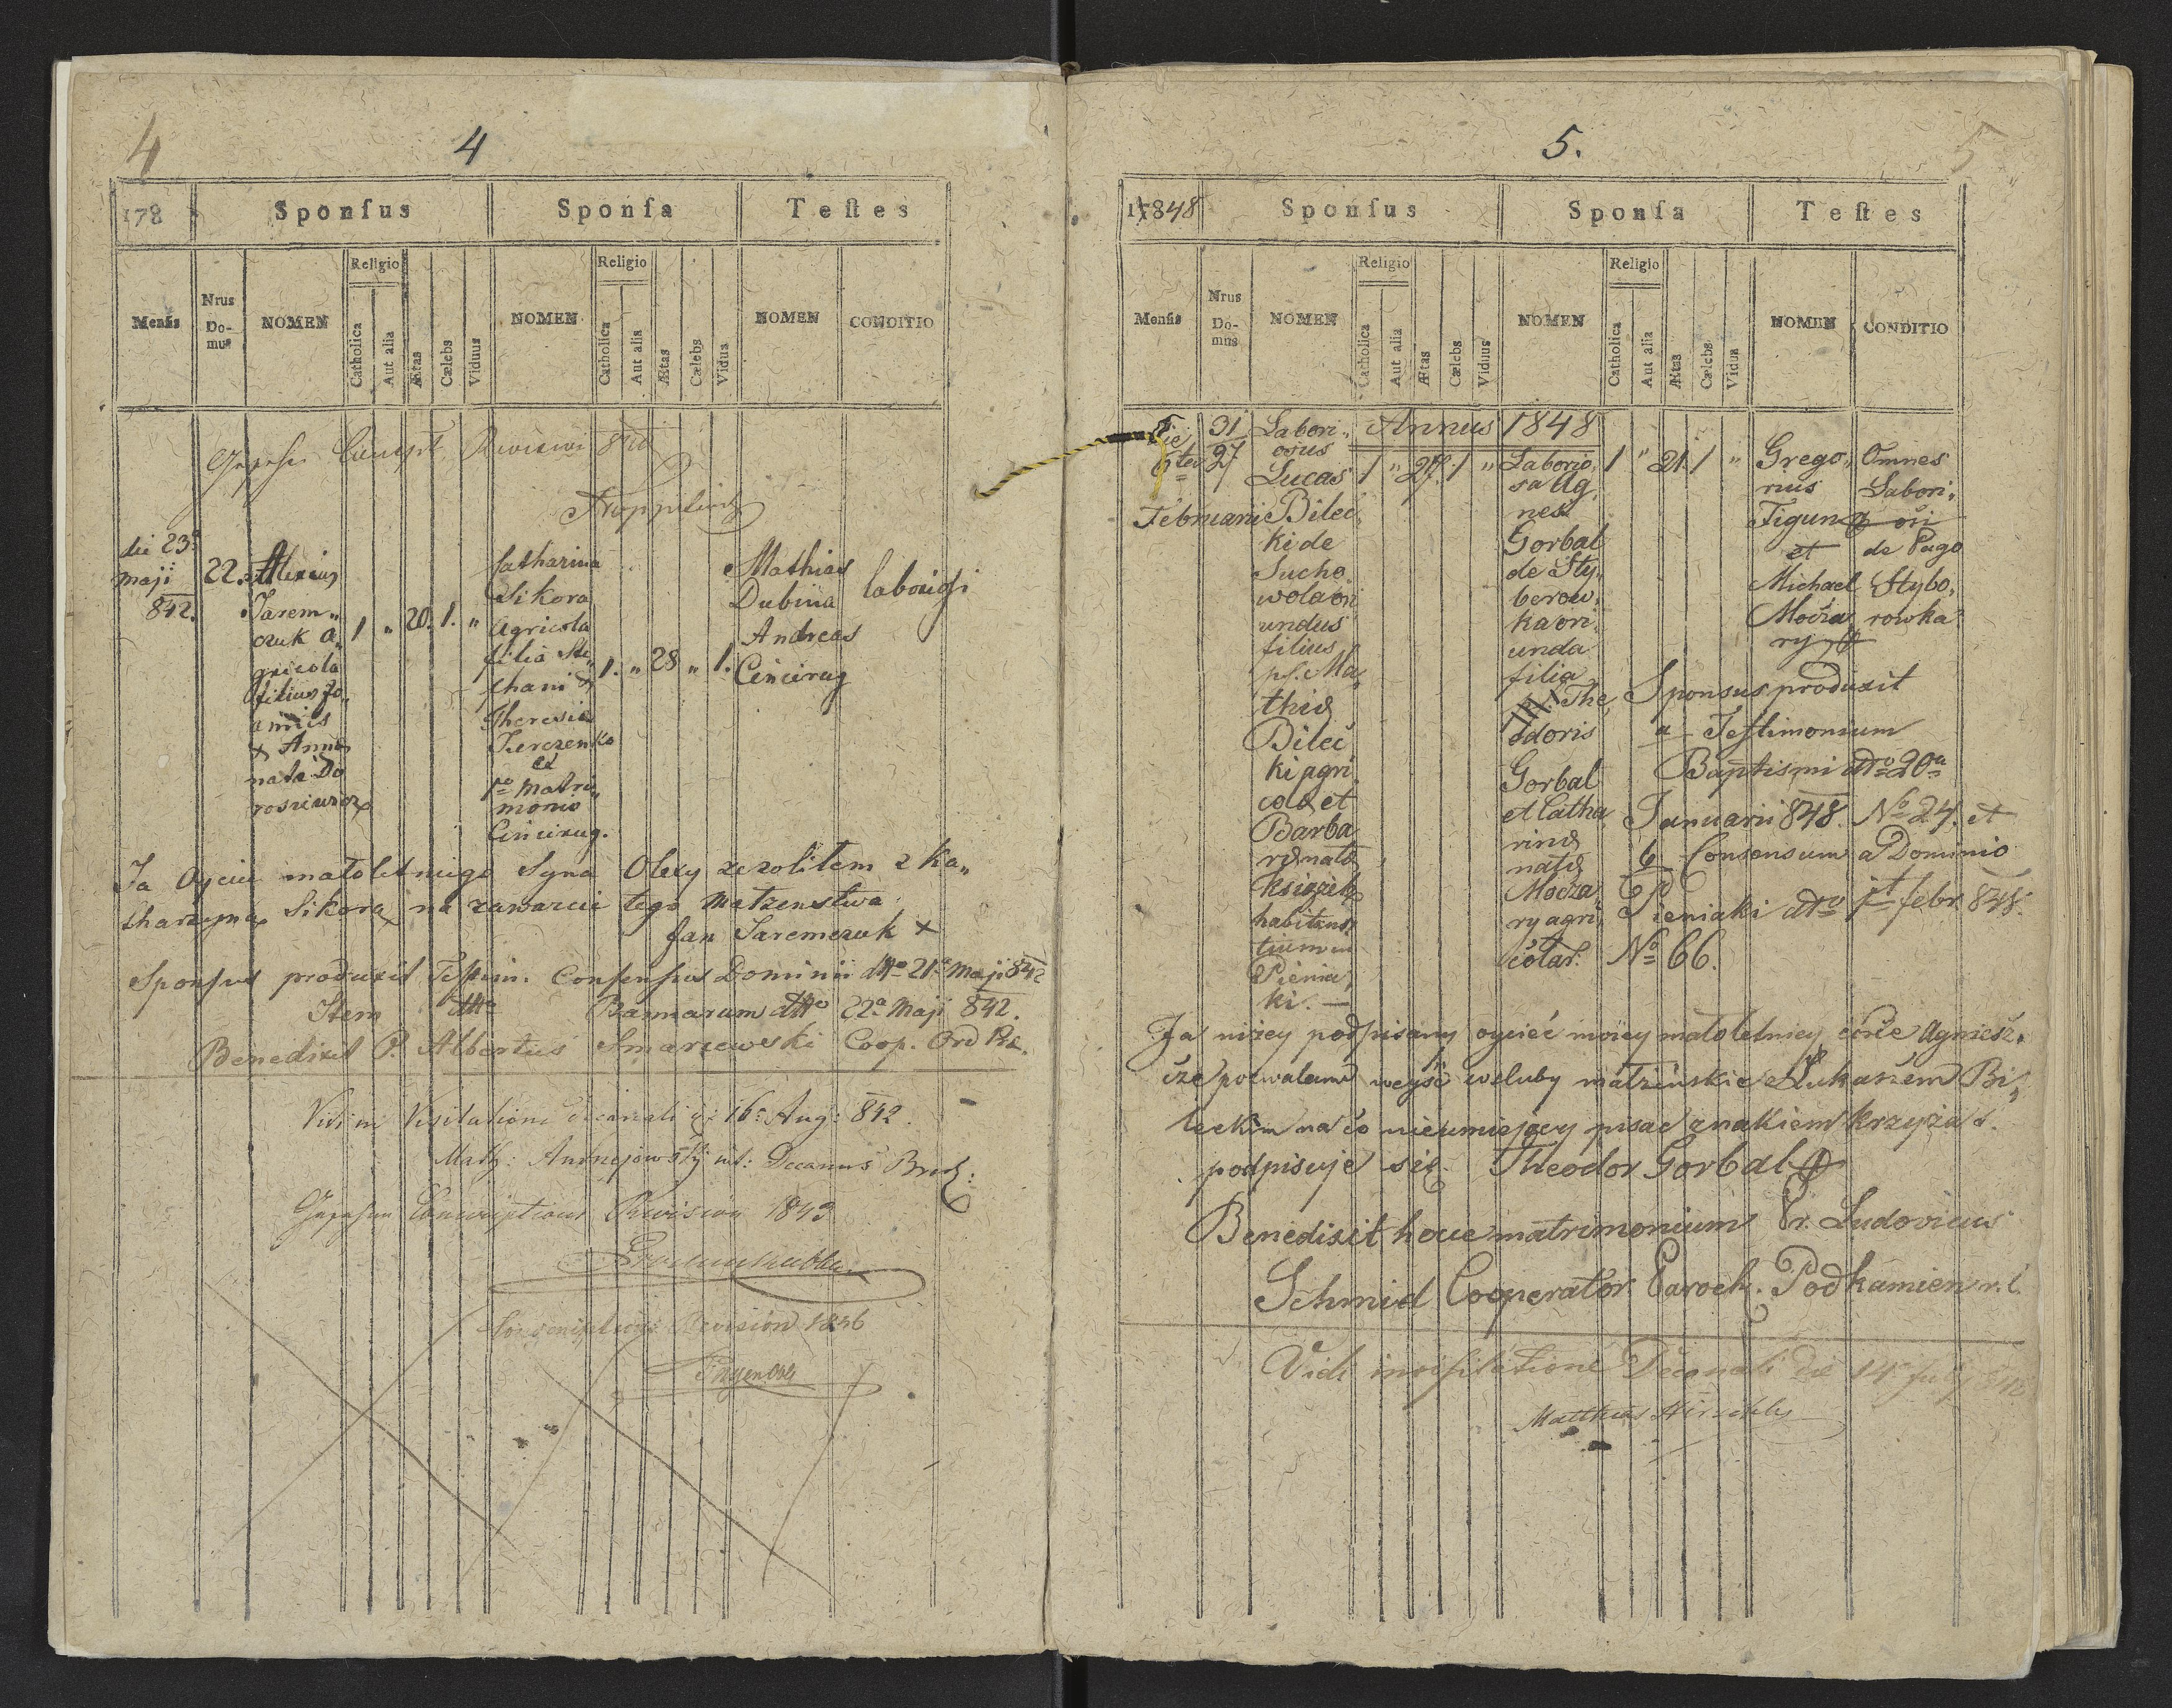 4
4
178
Sponſus
Sponſa
Teſtes
Menſis
Nrus Domus
NOMEN
Religio
Catholica
Aut alia
Ætas
Cælebs
Viduus
NOMEN
Religio
Catholica
Aut alia
Ætas
Cælebs
Vidua
NOMEN
CONDITIO
die 23a
maji
842.
22.
Alexius
Jarem„
czuk a„
gricola
filius Jo„
annis
& Anna
nata Do
1 „ 20. 1. „
Catharina
Sikora
agricola
filia Ste„
phani &
Theresia
Kerczenko
et
1o Matri„
monio
Cincirug.
1. „ 28 „ 1.
Mathias
Dubina
Andreas
Cincirug
laboriosi
Ja Oyciec małoletniego Syna Olexy zezolitem z Ka„
tharzyną Sikorą na zawarcie tego Matzenstwa
Jan Jaremczuk +
Sponsus produxit Testim. Consensus Dominii dtto 21a Maji 842
Item dtto Bannarum dtto 22a Maji 842.
Benedixit P. Albertus Smarzewski Coop. Ord Præ.
Vidi in Visitatione decanali d: 16a Aug: 842.
Math: Decanus Brod:
Conscriptions Revision 1843
Conscriptions Revision 1846
5.
5
1848
Sponſus
Sponſa
Teſtes
Menſis
Nrus Domus
NOMEN
Religio
Catholica
Aut alia
Ætas
Cælebs
Viduus
NOMEN
Religio
Catholica
Aut alia
Ætas
Cælebs
Vidua
NOMEN
CONDITIO
Annus 1848
Die
6ta
Februarii
31
27
Labori„
osus
Lucas
Bilec„
ki de
Sucho„
wola ori
undus
filius
pf. Ma„
thiæ
Bilec„
ki agri„
colæ et
Barba„
ræ natæ
Książek
habitan„
tium in
Pienia„
ki. —
1 „ 27. 1 „
Laborio„
sa Ag„
nes
Gorbal
de Sty„
berow„
ka ori„
unda
filia
The„
odoris
Gorbal
et Catha„
rinæ
natæ
Mocza„
ry agri„
colar.
1 „ 21. 1 „
Grego„
rius
Figura
et
Michael
Mocza„
ry
Omnes
Labori„
osi
de Pago
Stybo„
rowka
Sponsus produxit
a Testimonium
Baptismi dto 20a
Januarii 848. No 24. et
b Consensum a Dominio
Pieniaki dto 1t febr. 848.
No 66.
Ja nizey podpisany oyciec moiey małoletniey córce Agniesz„
cze pozwalam weyść w śluby małżeńskie z Łukaszem Bi„
leckim na co nieumiejący pisać znakiem krzyża s.
podpisuje się. Theodor Gorbal +
Benedixit hocce matrimonium Fr. Ludovicus
Schmid Cooperator Paroch. Podkamien r. l.
Vidi in visitatione Decanali die 14 July
Matthias